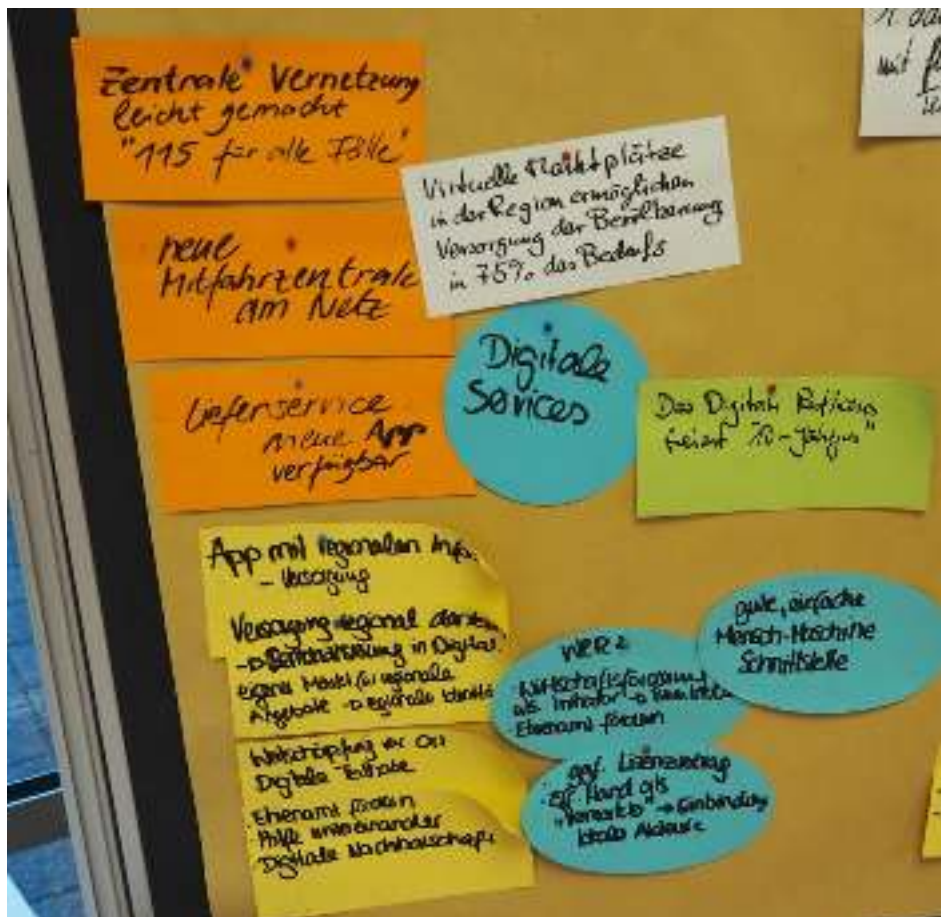 Zentrale Vernetzung
leicht gemacht
"115 für alle Fälle"
neue
Mitfahrzentrale
am Netz
Lieferservice
neue App
verfügbar
Virtuelle Marktplätze
in der Region ermöglichen
Versorgung der Bevölkerung
in 75% des Bedarfs
Digitale
Services
Das Digitale
feiert "10-jähriges"
mit
App mit regionalen Infos
- Versorgung
Versorgung regional
in Digital
eigener Markt für regionale
Angebote → regionale Identität
Wertschöpfung vor Ort
Digitale Teilhabe
Ehrenamt fördern
Hilfe untereinander
Digitale Nachbarschaft
WER?
Wirtschaftsförderung
als Initiator →
Ehrenamt fördern
gute, einfache
Mensch-Maschine
Schnittstelle
ggf. Lizenzvertrag
öff. Hand als
"Vermarkter" → Einbindung
lokale Akteure